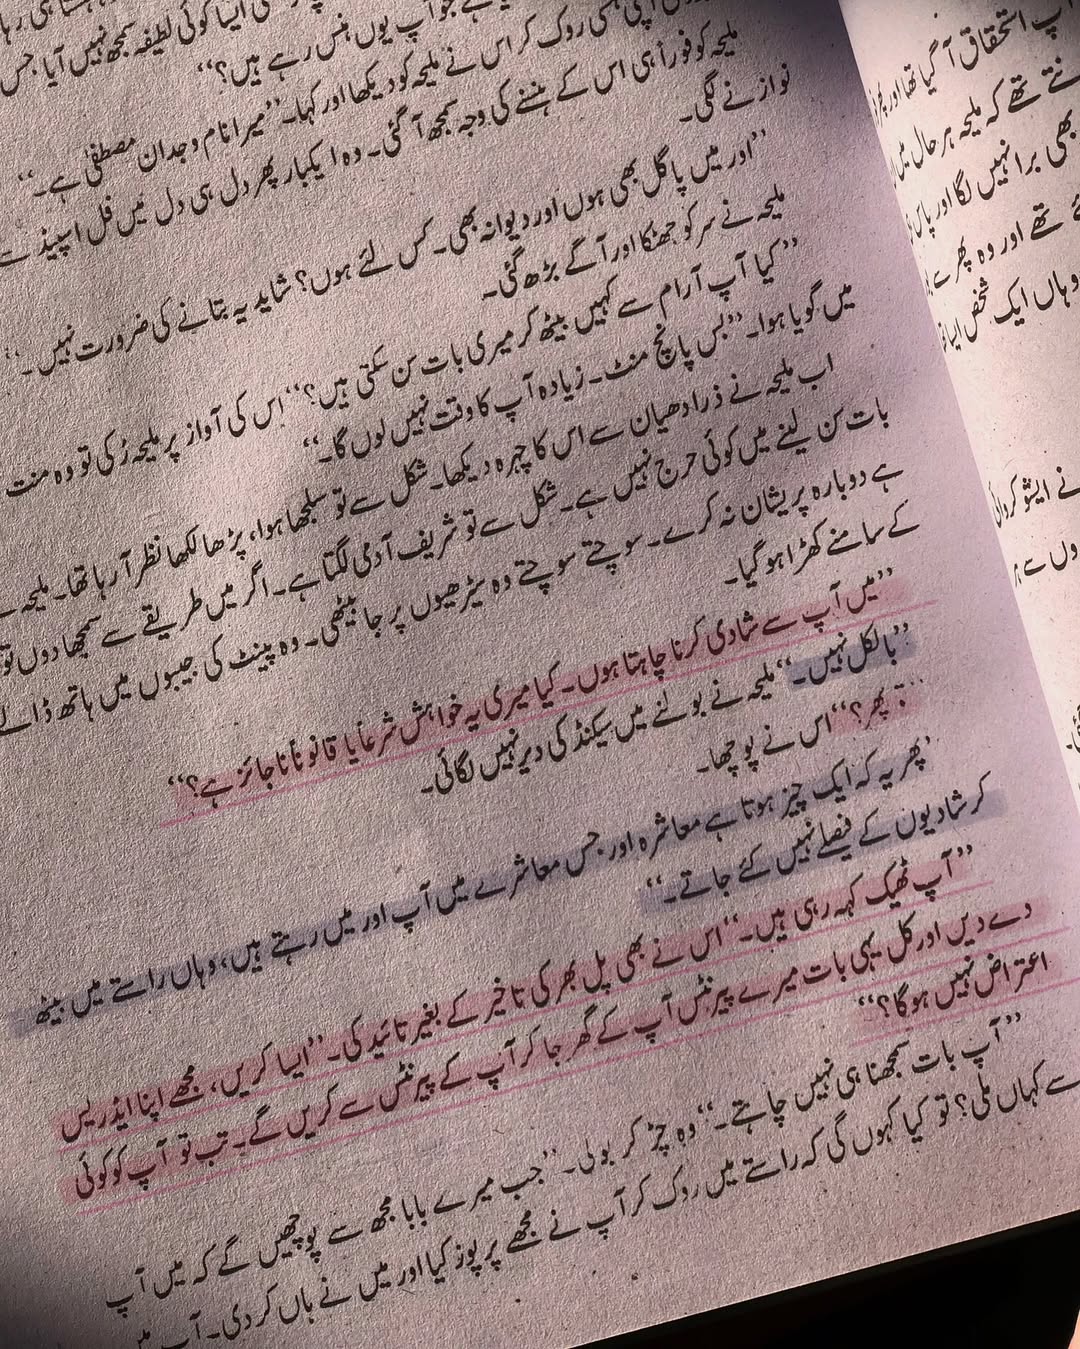 ایسا کوئی لطیفہ سمجھ نہیں آیا جس
جو آپ یوں ہنس رہے ہیں؟‘‘
اپنی ہنسی روک کر اس نے ملیحہ کو دیکھا اور کہا۔ ’’میرا نام وجدان مصطفیٰ ہے۔‘‘
ملیحہ کو فوراً ہی اس کے ہنسنے کی وجہ سمجھ آ گئی۔ وہ ایکبار پھر دل ہی دل میں فل اسپیڈ سے
نوازنے لگی۔
’’اور میں پاگل بھی ہوں اور دیوانہ بھی۔ کس لئے ہوں؟ شاید یہ بتانے کی ضرورت نہیں۔‘‘
ملیحہ نے سر کو جھٹکا اور آگے بڑھ گئی۔
’’کیا آپ آرام سے کہیں بیٹھ کر میری بات سن سکتی ہیں؟‘‘ اس کی آواز پر ملیحہ رُکی تو وہ منت
میں گویا ہوا۔ ’’بس پانچ منٹ۔ زیادہ آپ کا وقت نہیں لوں گا۔‘‘
اب ملیحہ نے ذرا دھیان سے اس کا چہرہ دیکھا۔ شکل سے تو سلجھا ہوا، پڑھا لکھا نظر آ رہا تھا۔ ملیحہ
بات سن لینے میں کوئی حرج نہیں ہے۔ شکل سے تو شریف آدمی لگتا ہے۔ اگر میں طریقے سے سمجھا دوں تو
ہے دوبارہ پریشان نہ کرے۔ سوچتے سوچتے وہ سیڑھیوں پر جا بیٹھی۔ وہ پینٹ کی جیبوں میں ہاتھ ڈالے
کے سامنے کھڑا ہو گیا۔
’’میں آپ سے شادی کرنا چاہتا ہوں۔ کیا میری یہ خواہش شرعاً یا قانوناً ناجائز ہے؟‘‘
’’بالکل نہیں۔‘‘ ملیحہ نے بولنے میں سیکنڈ کی دیر نہیں لگائی۔
پھر؟‘‘ اس نے پوچھا۔
’پھر یہ کہ ایک چیز ہوتا ہے معاشرہ اور جس معاشرے میں آپ اور میں رہتے ہیں، وہاں راستے میں بیٹھ
کر شادیوں کے فیصلے نہیں کئے جاتے۔‘‘
’’آپ ٹھیک کہہ رہی ہیں۔‘‘ اس نے بھی پل بھر کی تاخیر کے بغیر تائید کی۔ ’’ایسا کریں، مجھے اپنا ایڈریس
دے دیں اور کل یہی بات میرے پیرنٹس آپ کے گھر جا کر آپ کے پیرنٹس سے کریں گے۔ تب تو آپ کو کوئی
اعتراض نہیں ہو گا؟‘‘
’’آپ بات سمجھنا ہی نہیں چاہتے۔‘‘ وہ چڑ کر بولی۔ ’’جب میرے بابا مجھ سے پوچھیں گے کہ میں آپ
سے کہاں ملی؟ تو کیا کہوں گی کہ راستے میں روک کر آپ نے مجھے پرپوز کیا اور میں نے ہاں کر دی۔ آپ
آپ استحقاق آ گیا تھا اور پھر
تھے کہ ملیحہ ہر حال میں
بھی برا نہیں لگا اور پاس
تھے اور وہ پھر سے
وہاں ایک شخص ایسا
نے ایشو کروائی